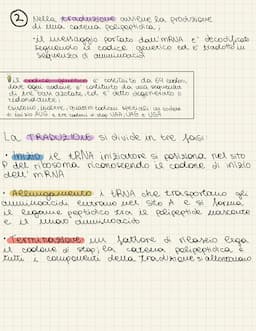 ② Nella traduzione avviene la produzione
di una catena polipeptidica;
• il messaggio portato dall'mRNA e' decodificato
seguendo il codice genetico ed e' tradotto in
sequenza di amminoacidi
il codice genetico e' costituito da 64 codoni
dove ogni codone e' costituito da una sequenza
di tre basi azotate, ed e' detto degenerato e
ridondante;
codoni speciali
di inizio AUG e tre codoni di stop UAA, UAG e UGA
La TRADUZIONE si divide in tre fasi:
• Inizio il tRNA iniziatore si posiziona nel sito
P del ribosoma riconoscendo il codone di inizio
dell' mRNA
• Allungamento i tRNA che trasportano gli
amminoacidi entrano nel sito A e si forma
il legame peptidico tra il polipeptide nascente
e il nuovo amminoacido
• Terminazione un fattore di rilascio lega
il codone di stop; la catena polipeptidica e
tutti i componenti della traduzione si allontanano